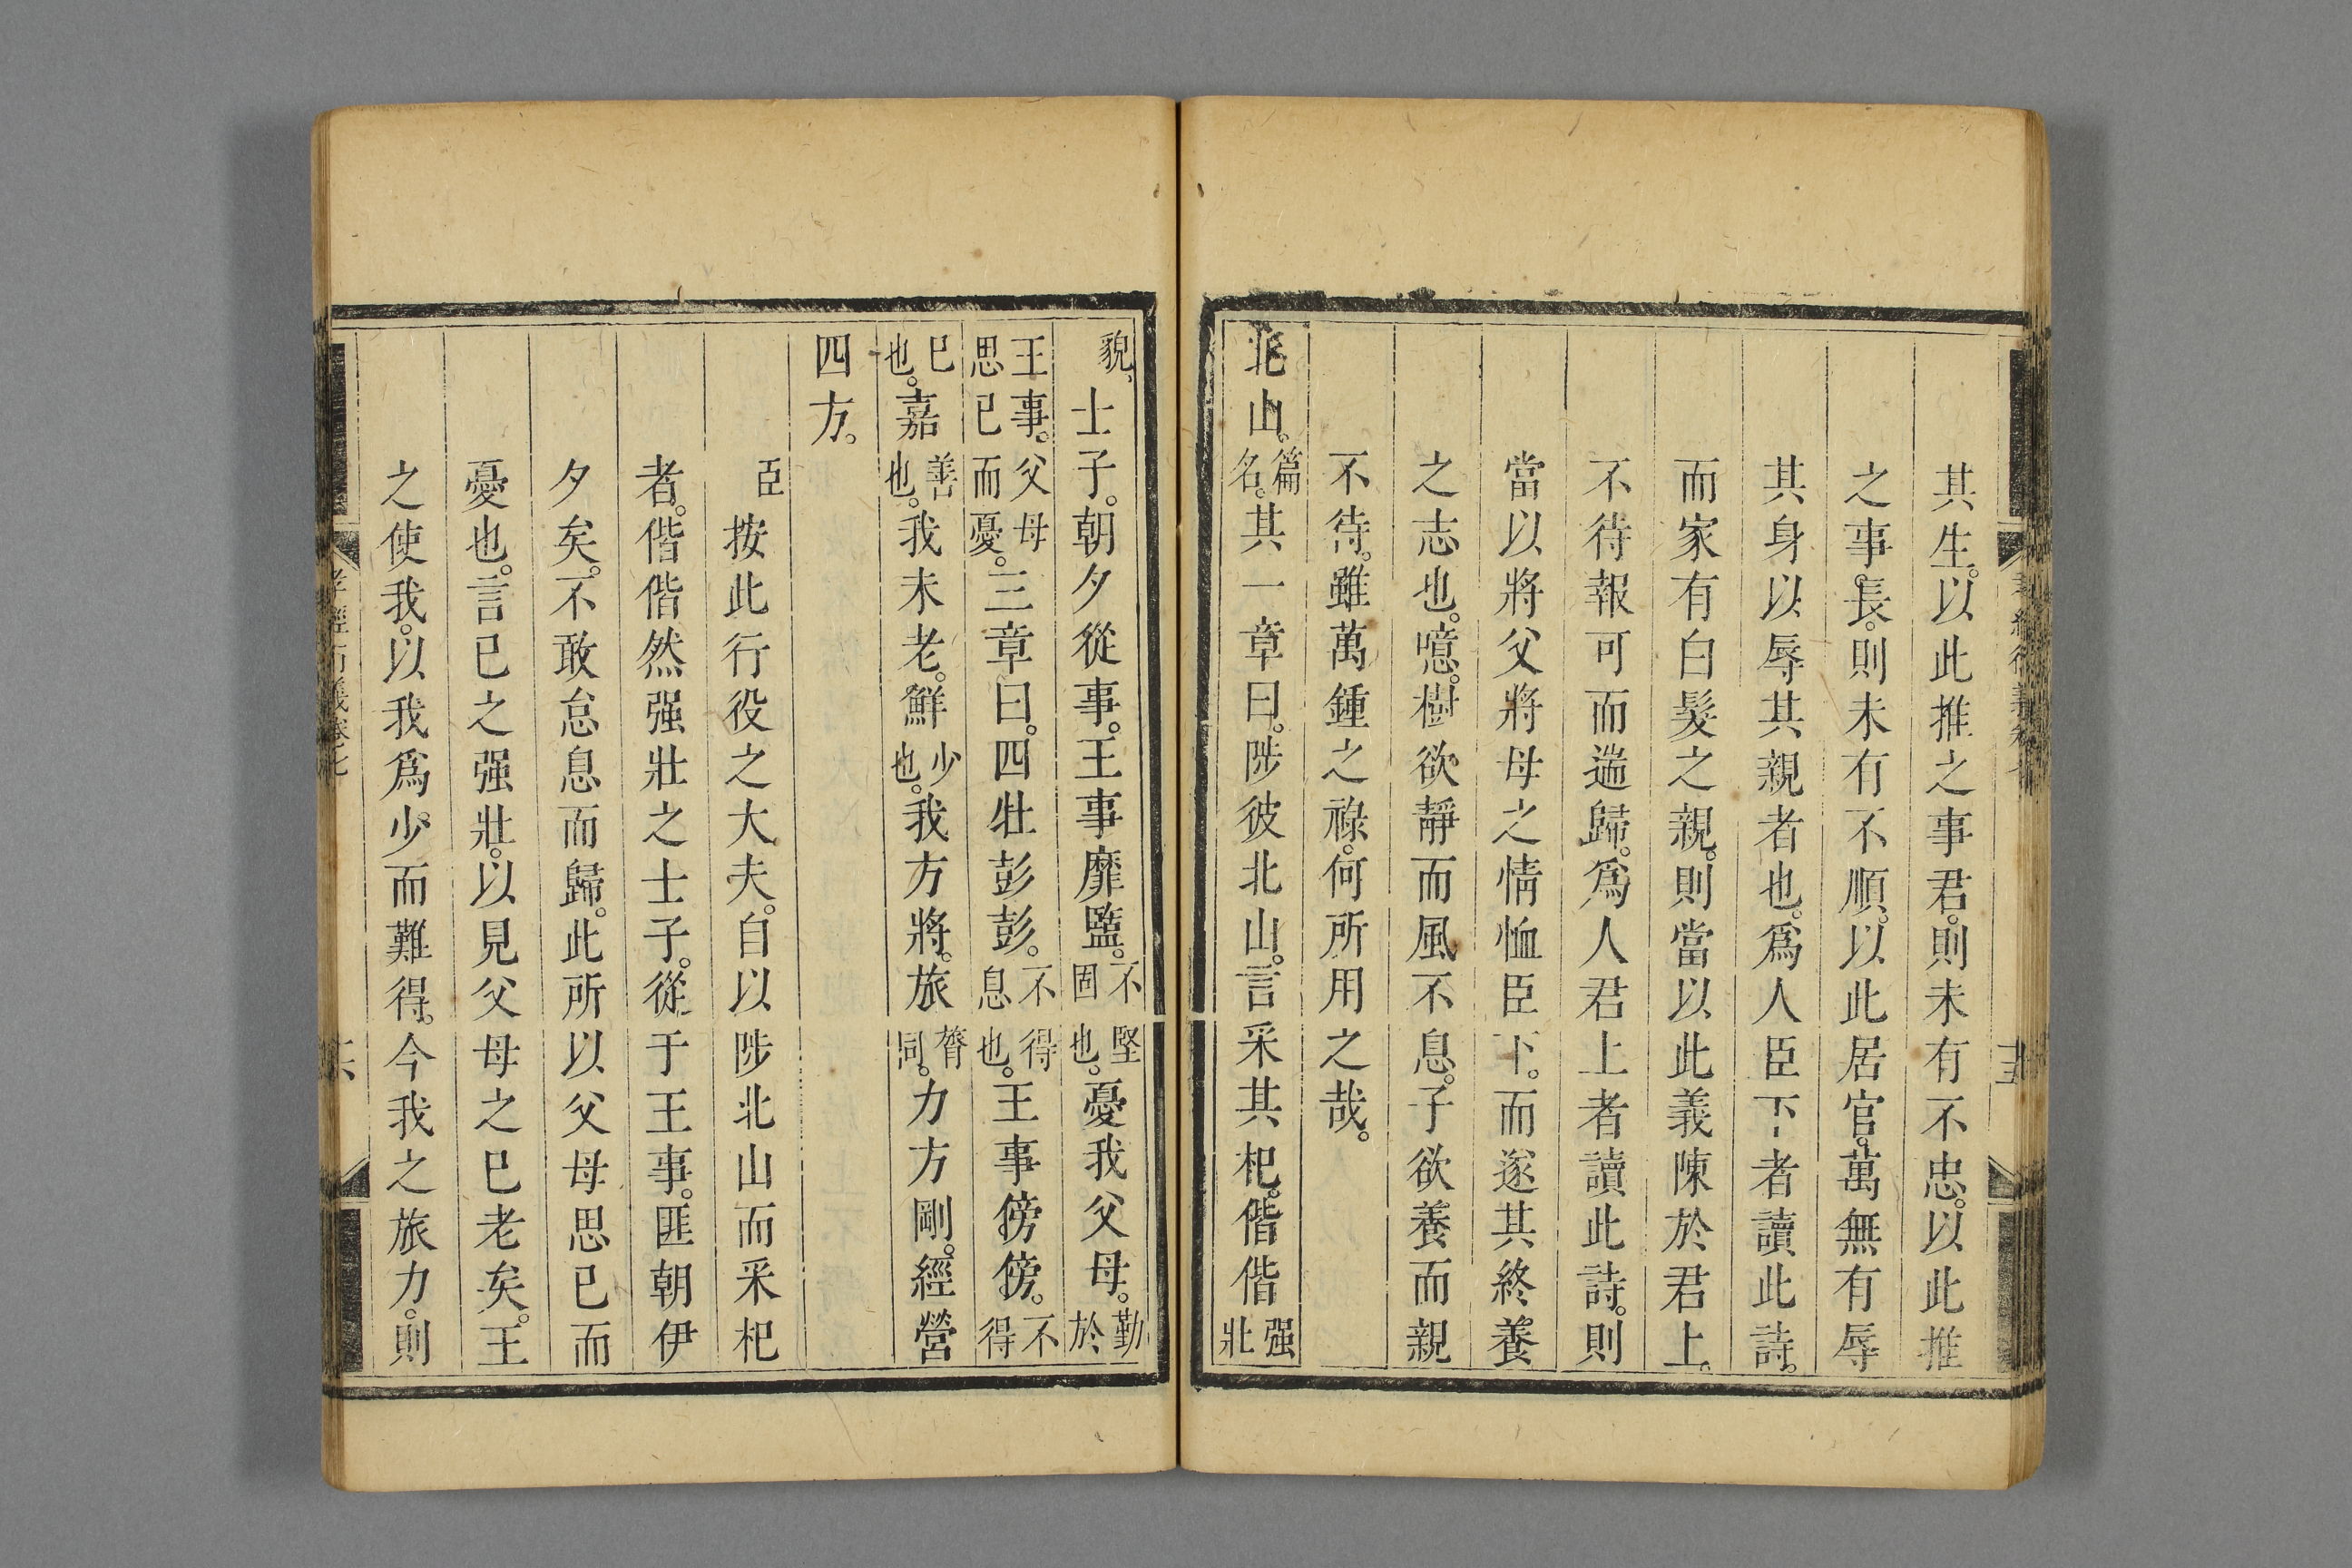 其生。以此推之事君。則未有不忠。以此推
之事長。則未有不順。以此居官。萬無有辱
其身以辱其親者也。爲人臣下者讀此詩。
而家有白髮之親。則當以此義陳於君上。
不待報可而遄歸。爲人君上者讀此詩。則
當以將父將母之情恤臣下。而遂其終養
之志也。噫。樹欲靜而風不息。子欲養而親
不待。雖萬鍾之祿。何所用之哉。
北山。篇名。其一章曰。陟彼北山。言采其杞。偕偕强壯
貌、士子。朝夕從事。王事靡盬。不堅固也。憂我父母。勤於
王事。父母思己而憂。三章曰。四牡彭彭。不得息也。王事傍傍。不得
已也。嘉善也。我未老。鮮少也。我方將。旅膂同。力方剛。經營
四方。
臣按此行役之大夫。自以陟北山而采杞
者。偕偕然强壯之士子。從于王事。匪朝伊
夕矣。不敢怠息而歸。此所以父母思己而
憂也。言己之强壯。以見父母之已老矣。王
之使我。以我爲少而難得。今我之旅力。則